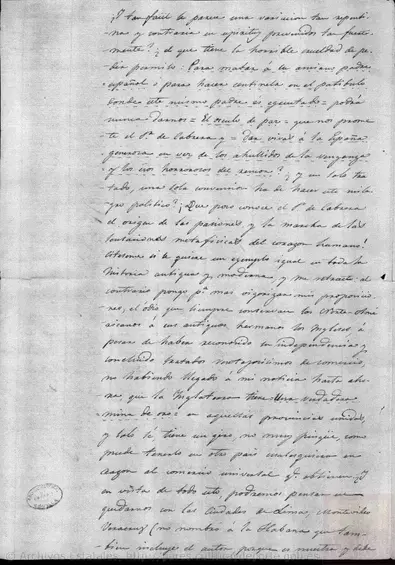 ¿I tan facil le parece una variacion tan repenti-
na y contraria
mente? ¿el que tiene la horrible crueldad de pe-
dir permiso Para matar á su anciano padre
español ó para hacer centinela en el patíbulo
donde este mismo padre es ejecutado = podrá
nunca darnos = El osculo de paz = que nos prome-
te el Sr. de Cabrera y = Dar vivas á la España
generosa en vez de los ahullidos de la venganza
y los ecos horrorosos del rencor? ¿y un solo tra-
tado, una sola convencion ha de hacer este mila-
gro politico? ¡Que poco conoce el Sr. de Cabrera
el origen de las pasiones y la marcha de las
metafisicas del corazon humano!
un ejemplo igual en toda la
historia antigua y moderna, y me retracto: al
contrario pongo pa. mas vigorizar mis proposicio-
nes, el ódio que siempre conservan los Norte Ame-
ricanos á sus antiguos hermanos los Yngleses á
pesar de haber reconocido su independencia y
concluido tratados de comercio,
no habiendo llegado á mi noticia hasta aho-
ra, que la Ynglaterra tiene una verdadera
mina de oro = en aquellas provincias unidas,
y solo si tiene un giro, no muy pingüe, como
puede tenerlo en otro pais cualesquiera en
razon al comercio universal qe.
en vista de todo esto, podremos pensar en
quedarnos con las ciudades de Lima, Montevideo
Veracruz (no nombro á la Habana que tam-
bien incluye el autor porque es nuestra y debe